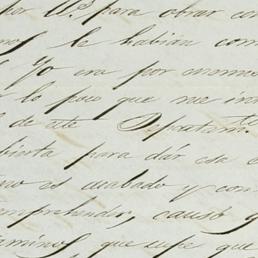 por V. para obrar con
le habian com
Yo era por enton
lo poco que me in
de este Departam.
bierta para dár esa
no es acabado y con
comprehender, causó
camino, que supe que